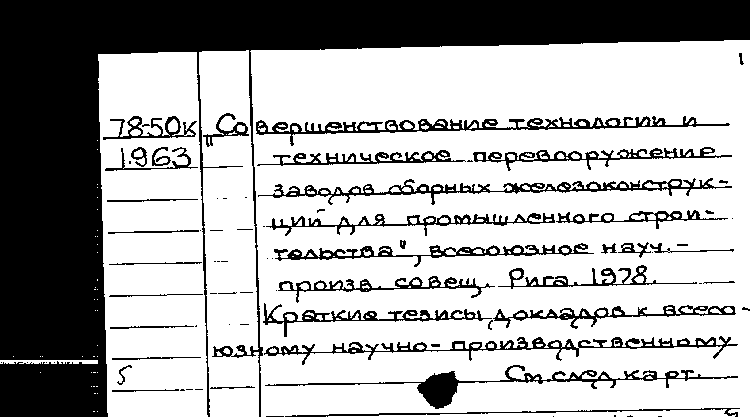 1
78-50к „Совершенствование технологии и
1963 техническое перевооружение
заводов сборных железоконструк-
ций для промышленного строи-
тельства", всесоюзное науч.-
произв. совещ. Рига. 1978.
Краткие тезисы докладов к всесо-
юзному научно-производственному
5 См. след. карт.